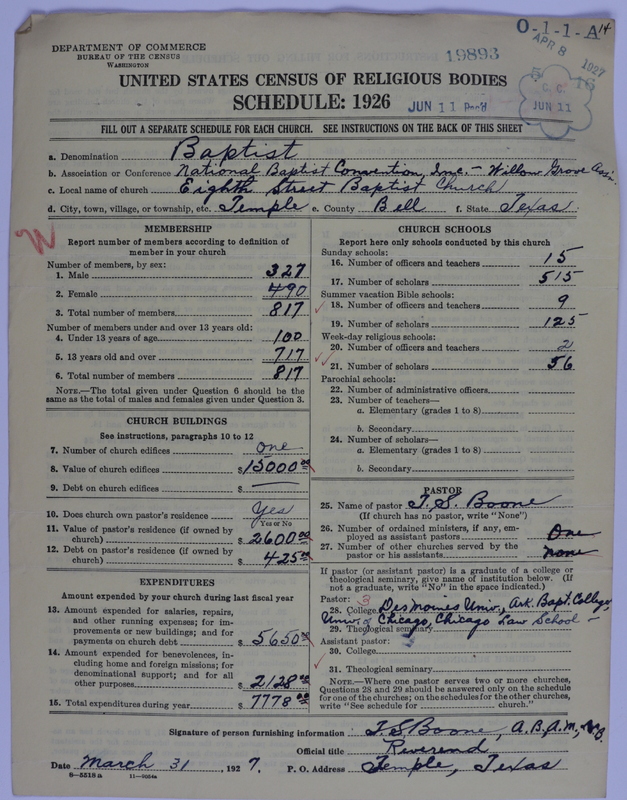 O-1-1-A 14
APR 8 1927
19893
DEPARTMENT OF COMMERCE
BUREAU OF THE CENSUS
WASHINGTON
UNITED STATES CENSUS OF RELIGIOUS BODIES
SCHEDULE: 1926
JUN 11 Rec'd
5 16
C. C.
JUN 11
FILL OUT A SEPARATE SCHEDULE FOR EACH CHURCH. SEE INSTRUCTIONS ON THE BACK OF THIS SHEET
a. Denomination Baptist
b. Association or Conference National Baptist Convention, Inc. – Willow Grove Ass'n
c. Local name of church Eighth Street Baptist Church
d. City, town, village, or township, etc. Temple e. County Bell f. State Texas
W
MEMBERSHIP
Report number of members according to definition of member in your church
Number of members, by sex:
1. Male 327
2. Female 490
3. Total number of members 817
Number of members under and over 13 years old:
4. Under 13 years of age 100
5. 13 years old and over 717
6. Total number of members 817
NOTE.—The total given under Question 6 should be the same as the total of males and females given under Question 3.
CHURCH BUILDINGS
See instructions, paragraphs 10 to 12
7. Number of church edifices One
8. Value of church edifices $15000 00
9. Debt on church edifices $ —
10. Does church own pastor's residence Yes
Yes or No
11. Value of pastor's residence (if owned by church) $2600 00
12. Debt on pastor's residence (if owned by church) $425 00
EXPENDITURES
Amount expended by your church during last fiscal year
13. Amount expended for salaries, repairs, and other running expenses; for improvements or new buildings; and for payments on church debt $5650 00
14. Amount expended for benevolences, including home and foreign missions; for denominational support; and for all other purposes $2128 00
15. Total expenditures during year $7778 00
CHURCH SCHOOLS
Report here only schools conducted by this church
Sunday schools:
16. Number of officers and teachers 15
17. Number of scholars 515
Summer vacation Bible schools:
18. Number of officers and teachers 9
19. Number of scholars 125
Week-day religious schools:
20. Number of officers and teachers 2
21. Number of scholars 56
Parochial schools:
22. Number of administrative officers
23. Number of teachers—
a. Elementary (grades 1 to 8)
b. Secondary
24. Number of scholars—
a. Elementary (grades 1 to 8)
b. Secondary
PASTOR
25. Name of pastor T. S. Boone
(If church has no pastor, write "None")
26. Number of ordained ministers, if any, employed as assistant pastors One
27. Number of other churches served by the pastor or his assistants none
If pastor (or assistant pastor) is a graduate of a college or theological seminary, give name of institution below. (If not a graduate, write "No" in the space indicated.)
Pastor: 3
28. College Des Moines Univ., Ark. Bapt. College,
Univ. of Chicago, Chicago Law School –
29. Theological seminary
Assistant pastor:
30. College
31. Theological seminary
NOTE.—Where one pastor serves two or more churches, Questions 28 and 29 should be answered only on the schedule for one of the churches; on the schedules for the other churches, write "See schedule for church."
Signature of person furnishing information T. S. Boone, A.B., A.M.,
Official title Reverend
Date March 31, 1927. P. O. Address Temple, Texas
8—5518a 11—9024a